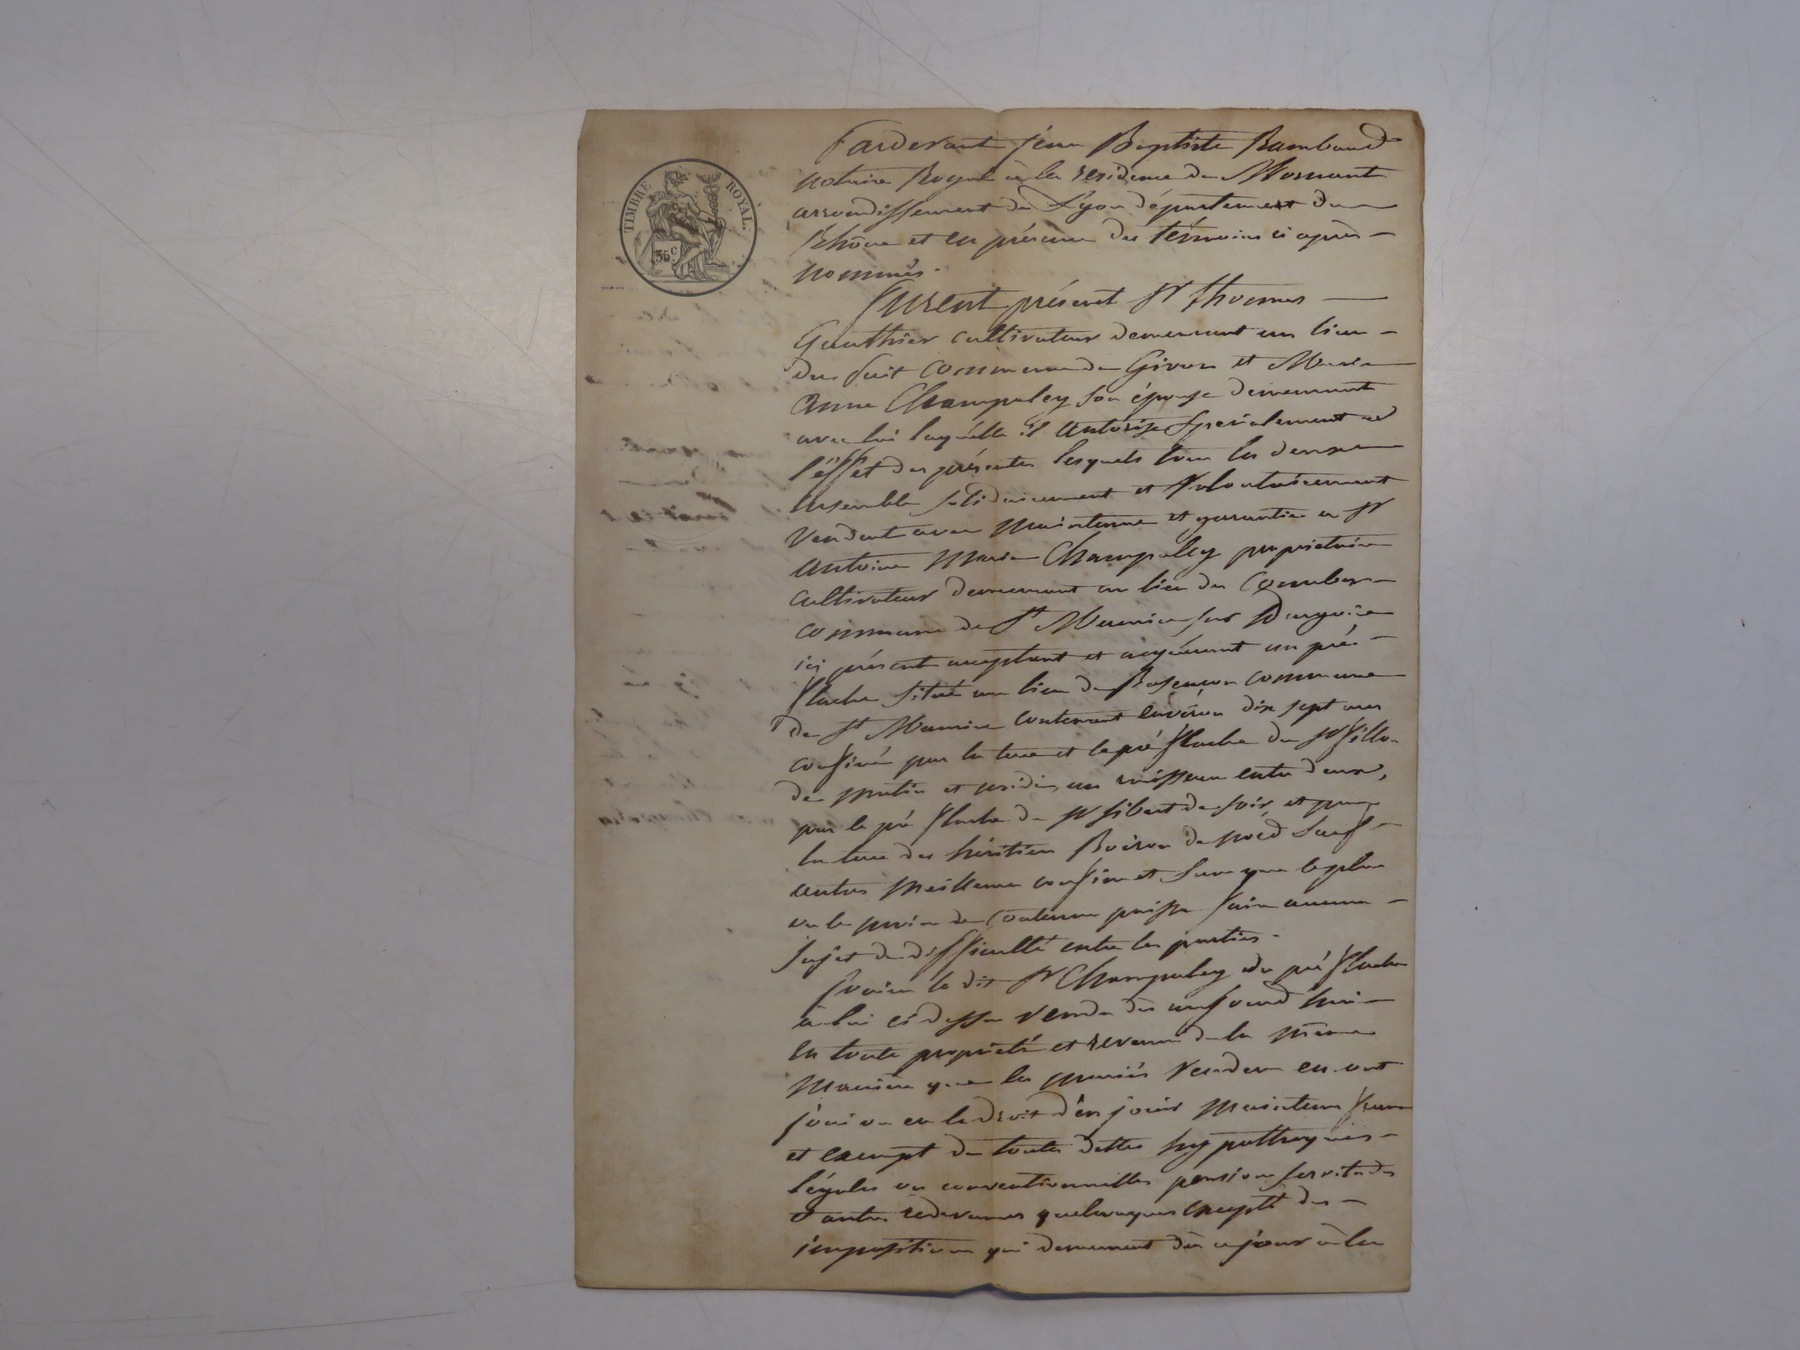 TIMBRE ROYAL
35c
Pardevant jean Baptiste Rambaud
notaire Royal à la résidence de Mornant
arrondissement de Lyon département du
Rhône et en présence des témoins ci après
nommés.
furent présent Sr thomas
Gauthier cultivateur demeurant au lieu
du commune de Givors et Marie
Anne Champaley son épouse demeurant
avec lui laquelle il autorise spécialement a
l'effet des présentes lesquels tous les deux
ensemble solidairement et volontairement
vendent avec maintenue et garantie a Sr
antoine Marie Champaley propriétaire
cultivateur demeurant au lieu des Combes
commune de St Maurice sur Dargoire
ici présent acceptant et acquérant un pré
situé au lieu de commune
de St Maurice contenant environ dix sept ares
confiné par la terre et le pré du Sr
de matin et midi, un ruisseau entre deux,
par le pré de Sr de soir, et par
la terre des héritiers de nord sauf
autres meilleurs confins et sans que le plus
ou le moins de contenu puisse faire aucun
sujet de difficulté entre les parties.
jouira le dit Sr Champaley du pré
à lui ci dessus vendu dès aujourd hui
en toute propriété et revenu de la même
manière que les mariés vendeurs en ont
joui ou eu le droit d'en jouir maintenu franc
et exempt de toutes dettes hypothèques
légales ou conventionnelles pension servitudes
et autres redevances quelconques excepté des
impositions qui demeurent dès ce jour à la